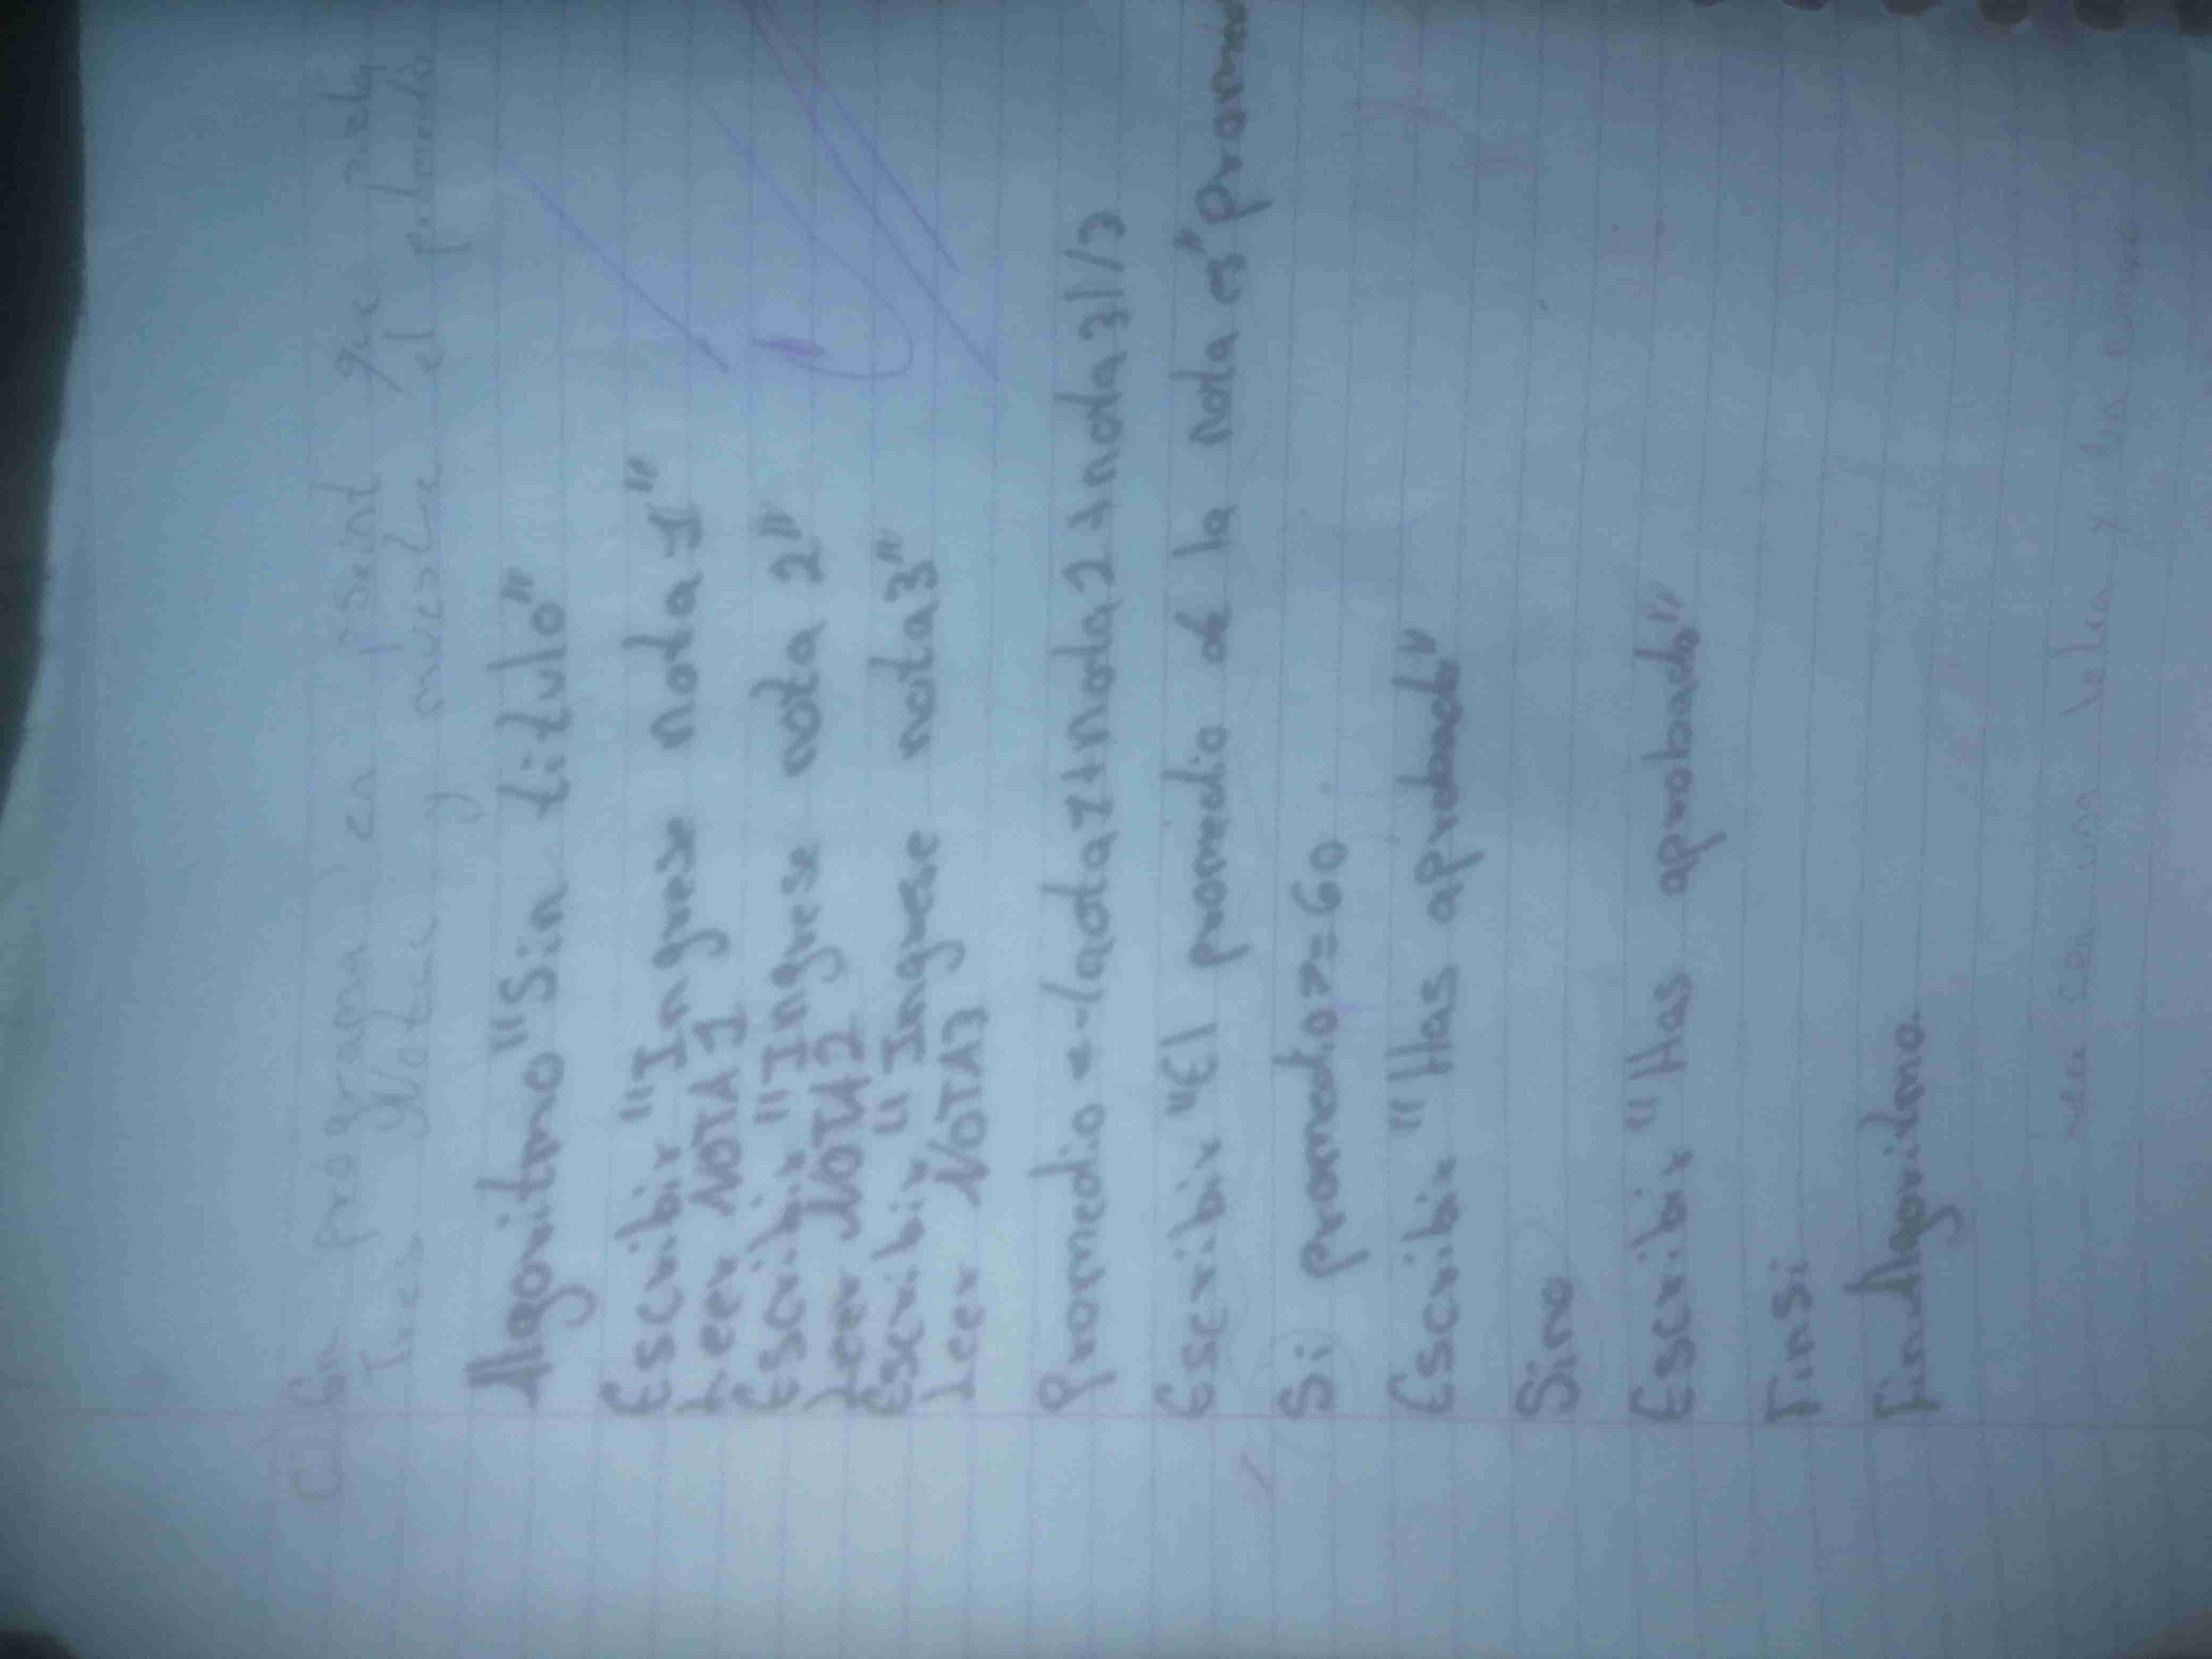 programa en pseint que pida
Tres Notas y muestre el promedio
Algoritmo "Sin titulo"
Escribir "Ingrese nota 1"
Leer NOTA 1
Escribir "Ingrese nota 2"
Leer NOTA2
Escribir "Ingrese nota3"
Leer NOTA3
Promedio <-(nota1+nota2+nota3)/3
Escribir "El promedio de la nota es" Promed
Si promedio>=60
Escribir "Has aprobado"
Sino
Escribir "Has aprobado"
Finsi
FinAlgoritmo
con una